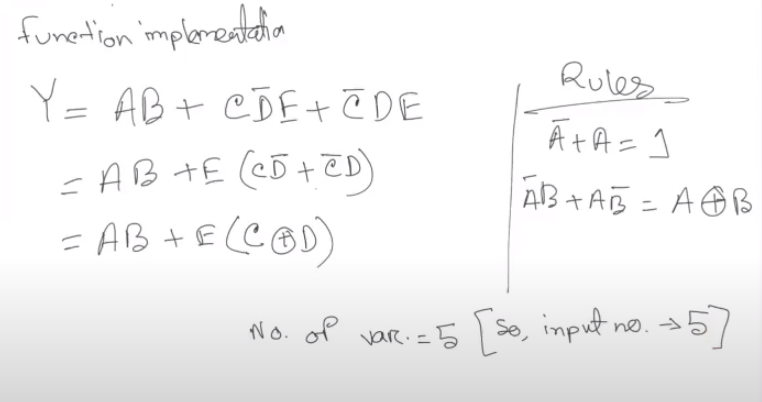 function implementation
Y = AB + CD̅E + C̅DE
= AB + E (CD̅ + C̅D)
= AB + E (C⊕D)
Rules
A̅ + A = 1
A̅B + AB̅ = A⊕B
No. of var. = 5 [So, input no. → 5]